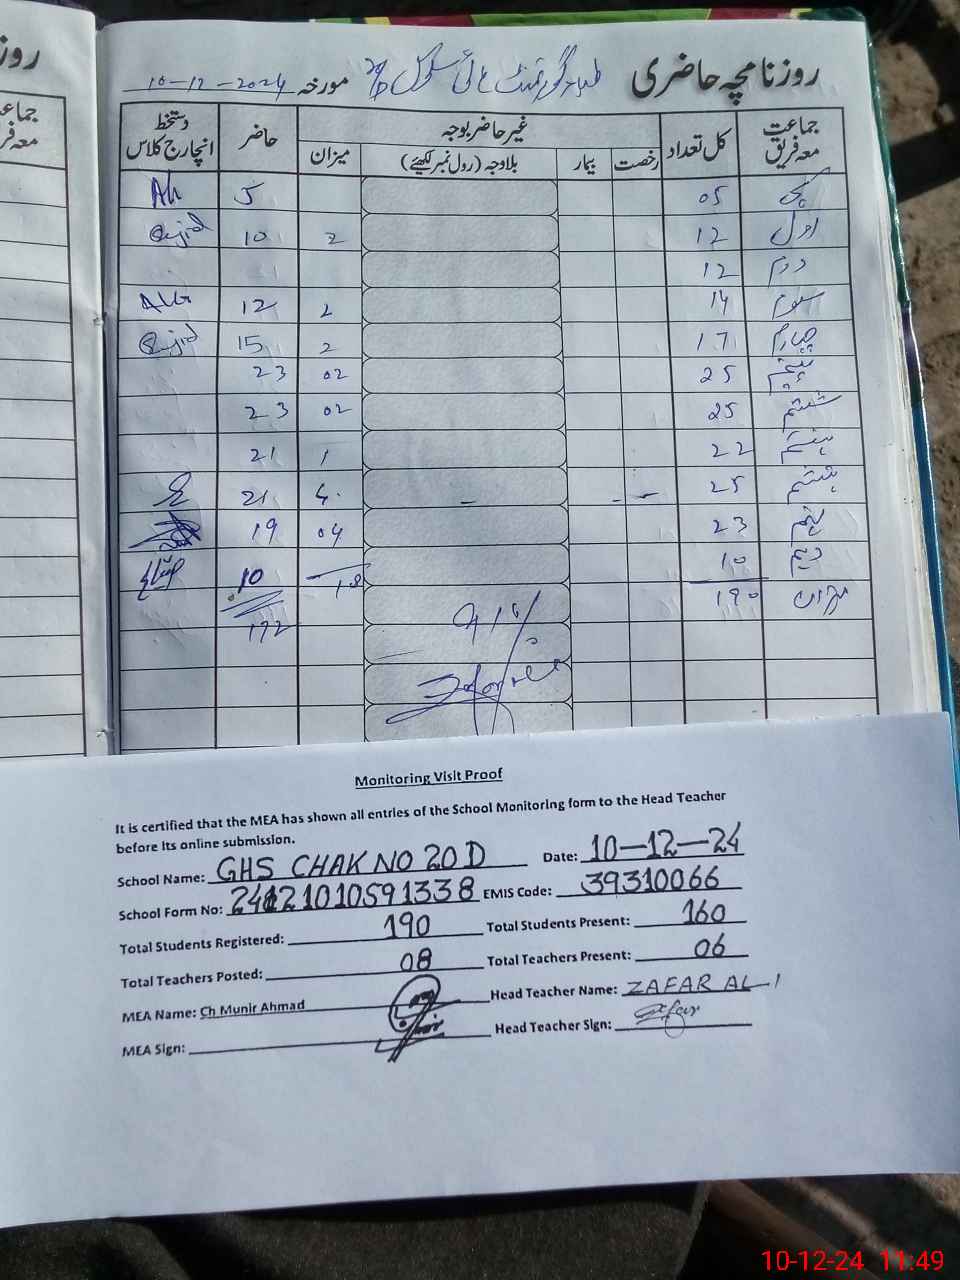 روزنامچہ حاضری طلباء گورنمنٹ ہائی سکول 20/D مورخہ 10-12-2024
جماعت معہ فریق کل تعداد غیر حاضر بوجہ حاضر دستخط انچارج کلاس
رخصت بیمار بلاوجہ (رول نمبر لکھیئے) میزان
کچی 05 5 Ali
اول 12 2 10 Sajid
دوم 12
سوم 14 2 12 Ali
چہارم 17 2 15 Sajid
پنجم 25 02 23
ششم 25 02 23
ہفتم 22 1 21
ہشتم 25 4 21
نہم 23 04 19
دہم 10 10
میزان 190 18 172
91%
Monitoring Visit Proof
It is certified that the MEA has shown all entries of the School Monitoring form to the Head Teacher
before its online submission.
School Name: GHS CHAK NO 20 D Date: 10-12-24
School Form No: 24121010591338 EMIS Code: 39310066
Total Students Registered: 190 Total Students Present: 160
Total Teachers Posted: 08 Total Teachers Present: 06
MEA Name: Ch Munir Ahmad Head Teacher Name: ZAFAR ALI
MEA Sign: Head Teacher Sign: Zafar
10-12-24 11:49